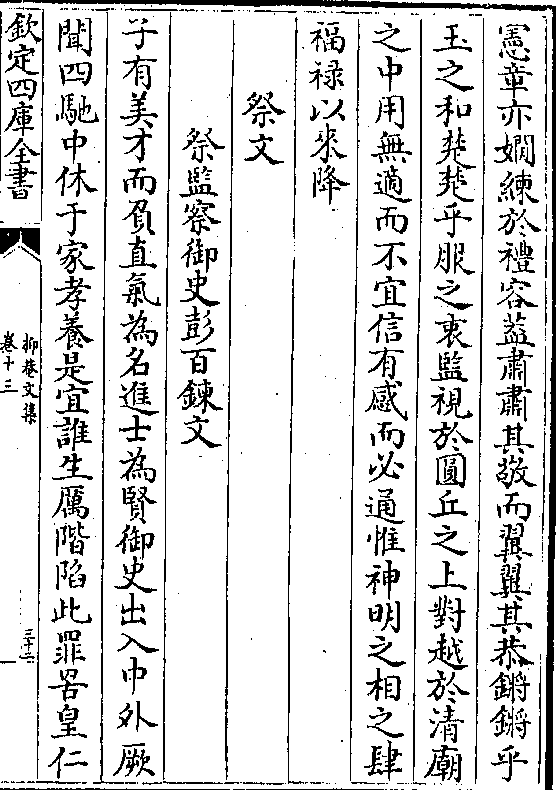 憲章亦嫺練於禮容葢肅肅其敬而翼翼其恭鏘鏘乎
玉之和楚楚乎服之衷監視於圜丘之上對越於清廟
之中用無適而不宜信有感而必通惟神明之相之肆
福禄以來降
祭文
祭監察御史彭百鍊文
子有美才而負直氣為名進士為賢御史出入中外厥
聞四馳中休于家孝養是宜誰生厲階陷此罪罟皇仁
欽定四庫全書
抑菴文集
卷十三
三十二